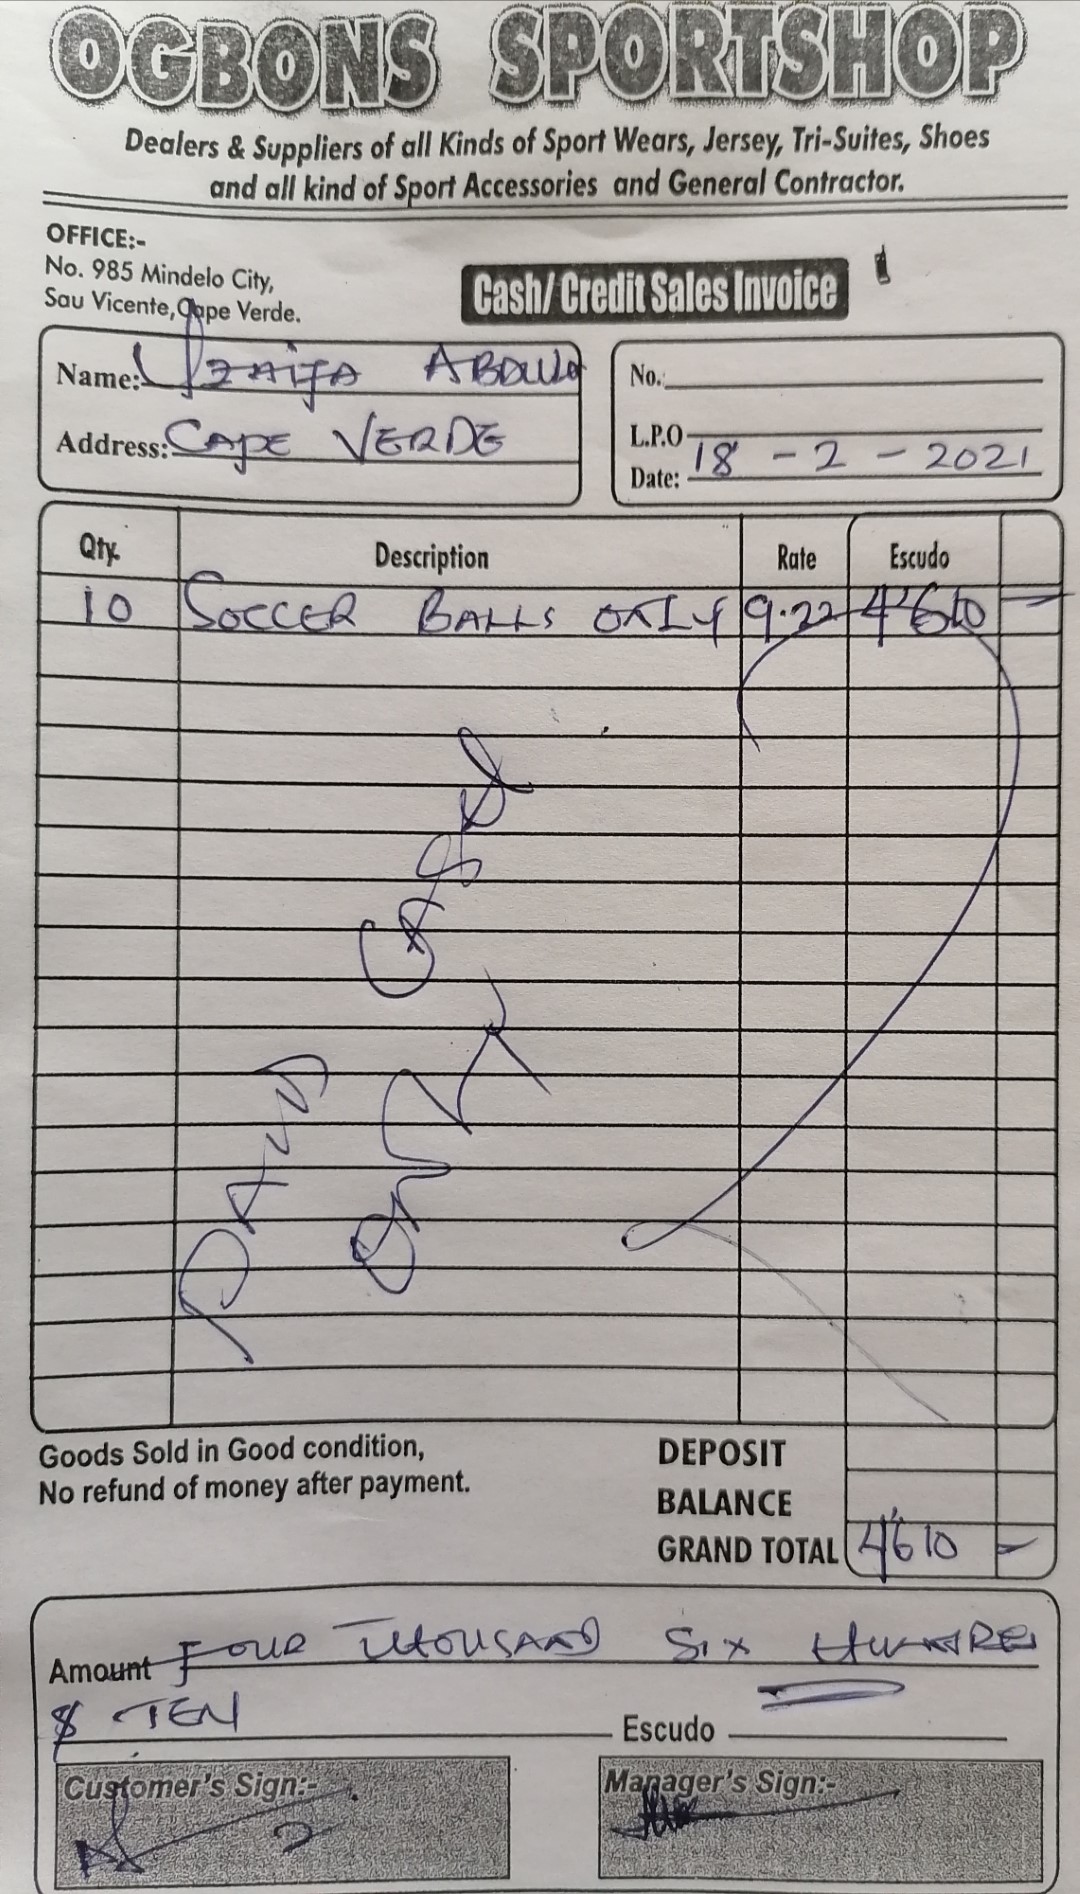 OGBONS SPORTSHOP
Dealers & Suppliers of all Kinds of Sport Wears, Jersey, Tri-Suites, Shoes
and all kind of Sport Accessories and General Contractor.
OFFICE:-
No. 985 Mindelo City,
Sau Vicente, Cape Verde.
Cash/Credit Sales Invoice
Name:
Address: CAPE VERDE
No.
L.P.O
Date: 18 - 2 - 2021
Qty. Description Rate Escudo
10 SOCCER BALLS ONLY 9.22 4'610
Goods Sold in Good condition,
No refund of money after payment.
DEPOSIT
BALANCE
GRAND TOTAL 4'610
Amount FOUR THOUSAND SIX HUNDRED
& TEN Escudo
Customer's Sign:-
Manager's Sign:-